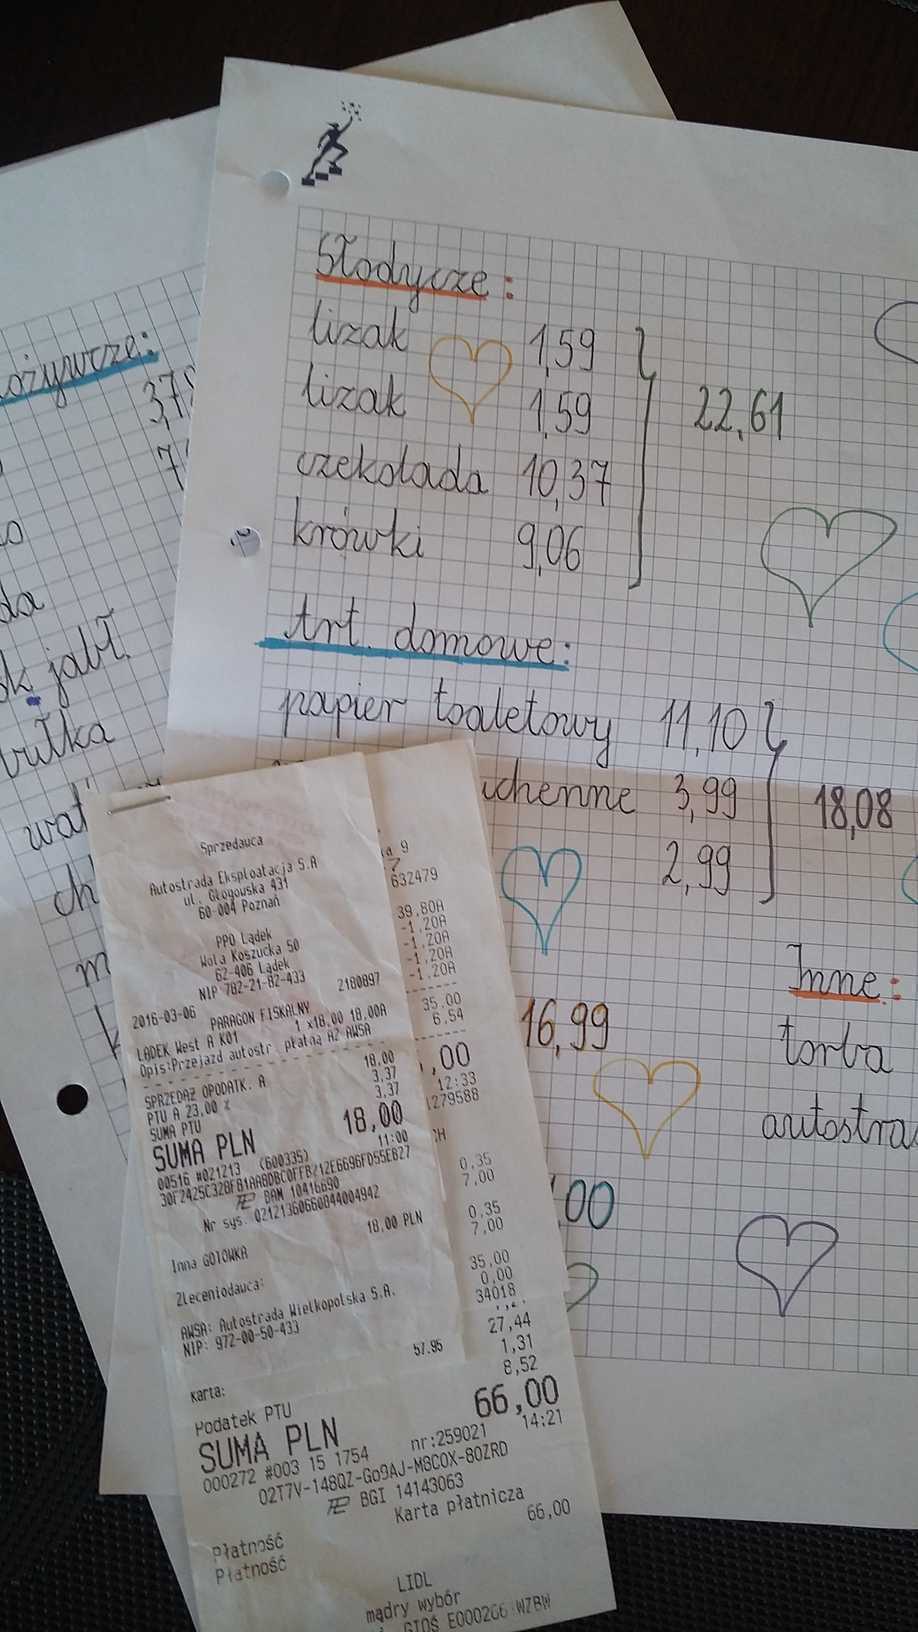 Słodycze:
lizak 1,59
lizak 1,59
22,61
czekolada 10,37
krówki 9,06
Art. domowe:
papier toaletowy 11,10
3,99
18,08
2,99
16,99
Inne:
torba
3,7
7
jabł.
Sprzedawca
Autostrada Eksploatacja S.A
ul. Głogowska 431
60-004 Poznań
PPO Lądek
Wola Koszucka 50
62-406 Lądek
NIP 782-21-82-433
2016-03-06 PARAGON FISKALNY 2180897
LĄDEK West A K01 1 x18,00 18,00A
Opis:Przejazd autostr. płatną A2 AWSA
SPRZEDAŻ OPODATK. A 18,00
PTU A 23,00 % 3,37
SUMA PTU 3,37
SUMA PLN 18,00
00516 #021213 (600335) 11:00
BAM 10416690
Nr sys. 02121360660844004942
Inna GOTÓWKA 18,00 PLN
Zleceniodawca:
AWSA: Autostrada Wielkopolska S.A.
NIP: 972-00-50-433
9
632479
39,80A
-1,20A
-1,20A
-1,20A
-1,20A
35,00
6,54
,00
12:33
0,35
7,00
0,35
7,00
35,00
0,00
34018
27,44
57,95 1,31
Karta:
Podatek PTU 8,52
SUMA PLN 66,00
000272 #003 15 1754 nr:259021 14:21
02T7V-148QZ-GO9AJ-M8COX-80ZRD
BGI 14143063
Płatność Karta płatnicza
Płatność 66,00
LIDL
mądry wybór